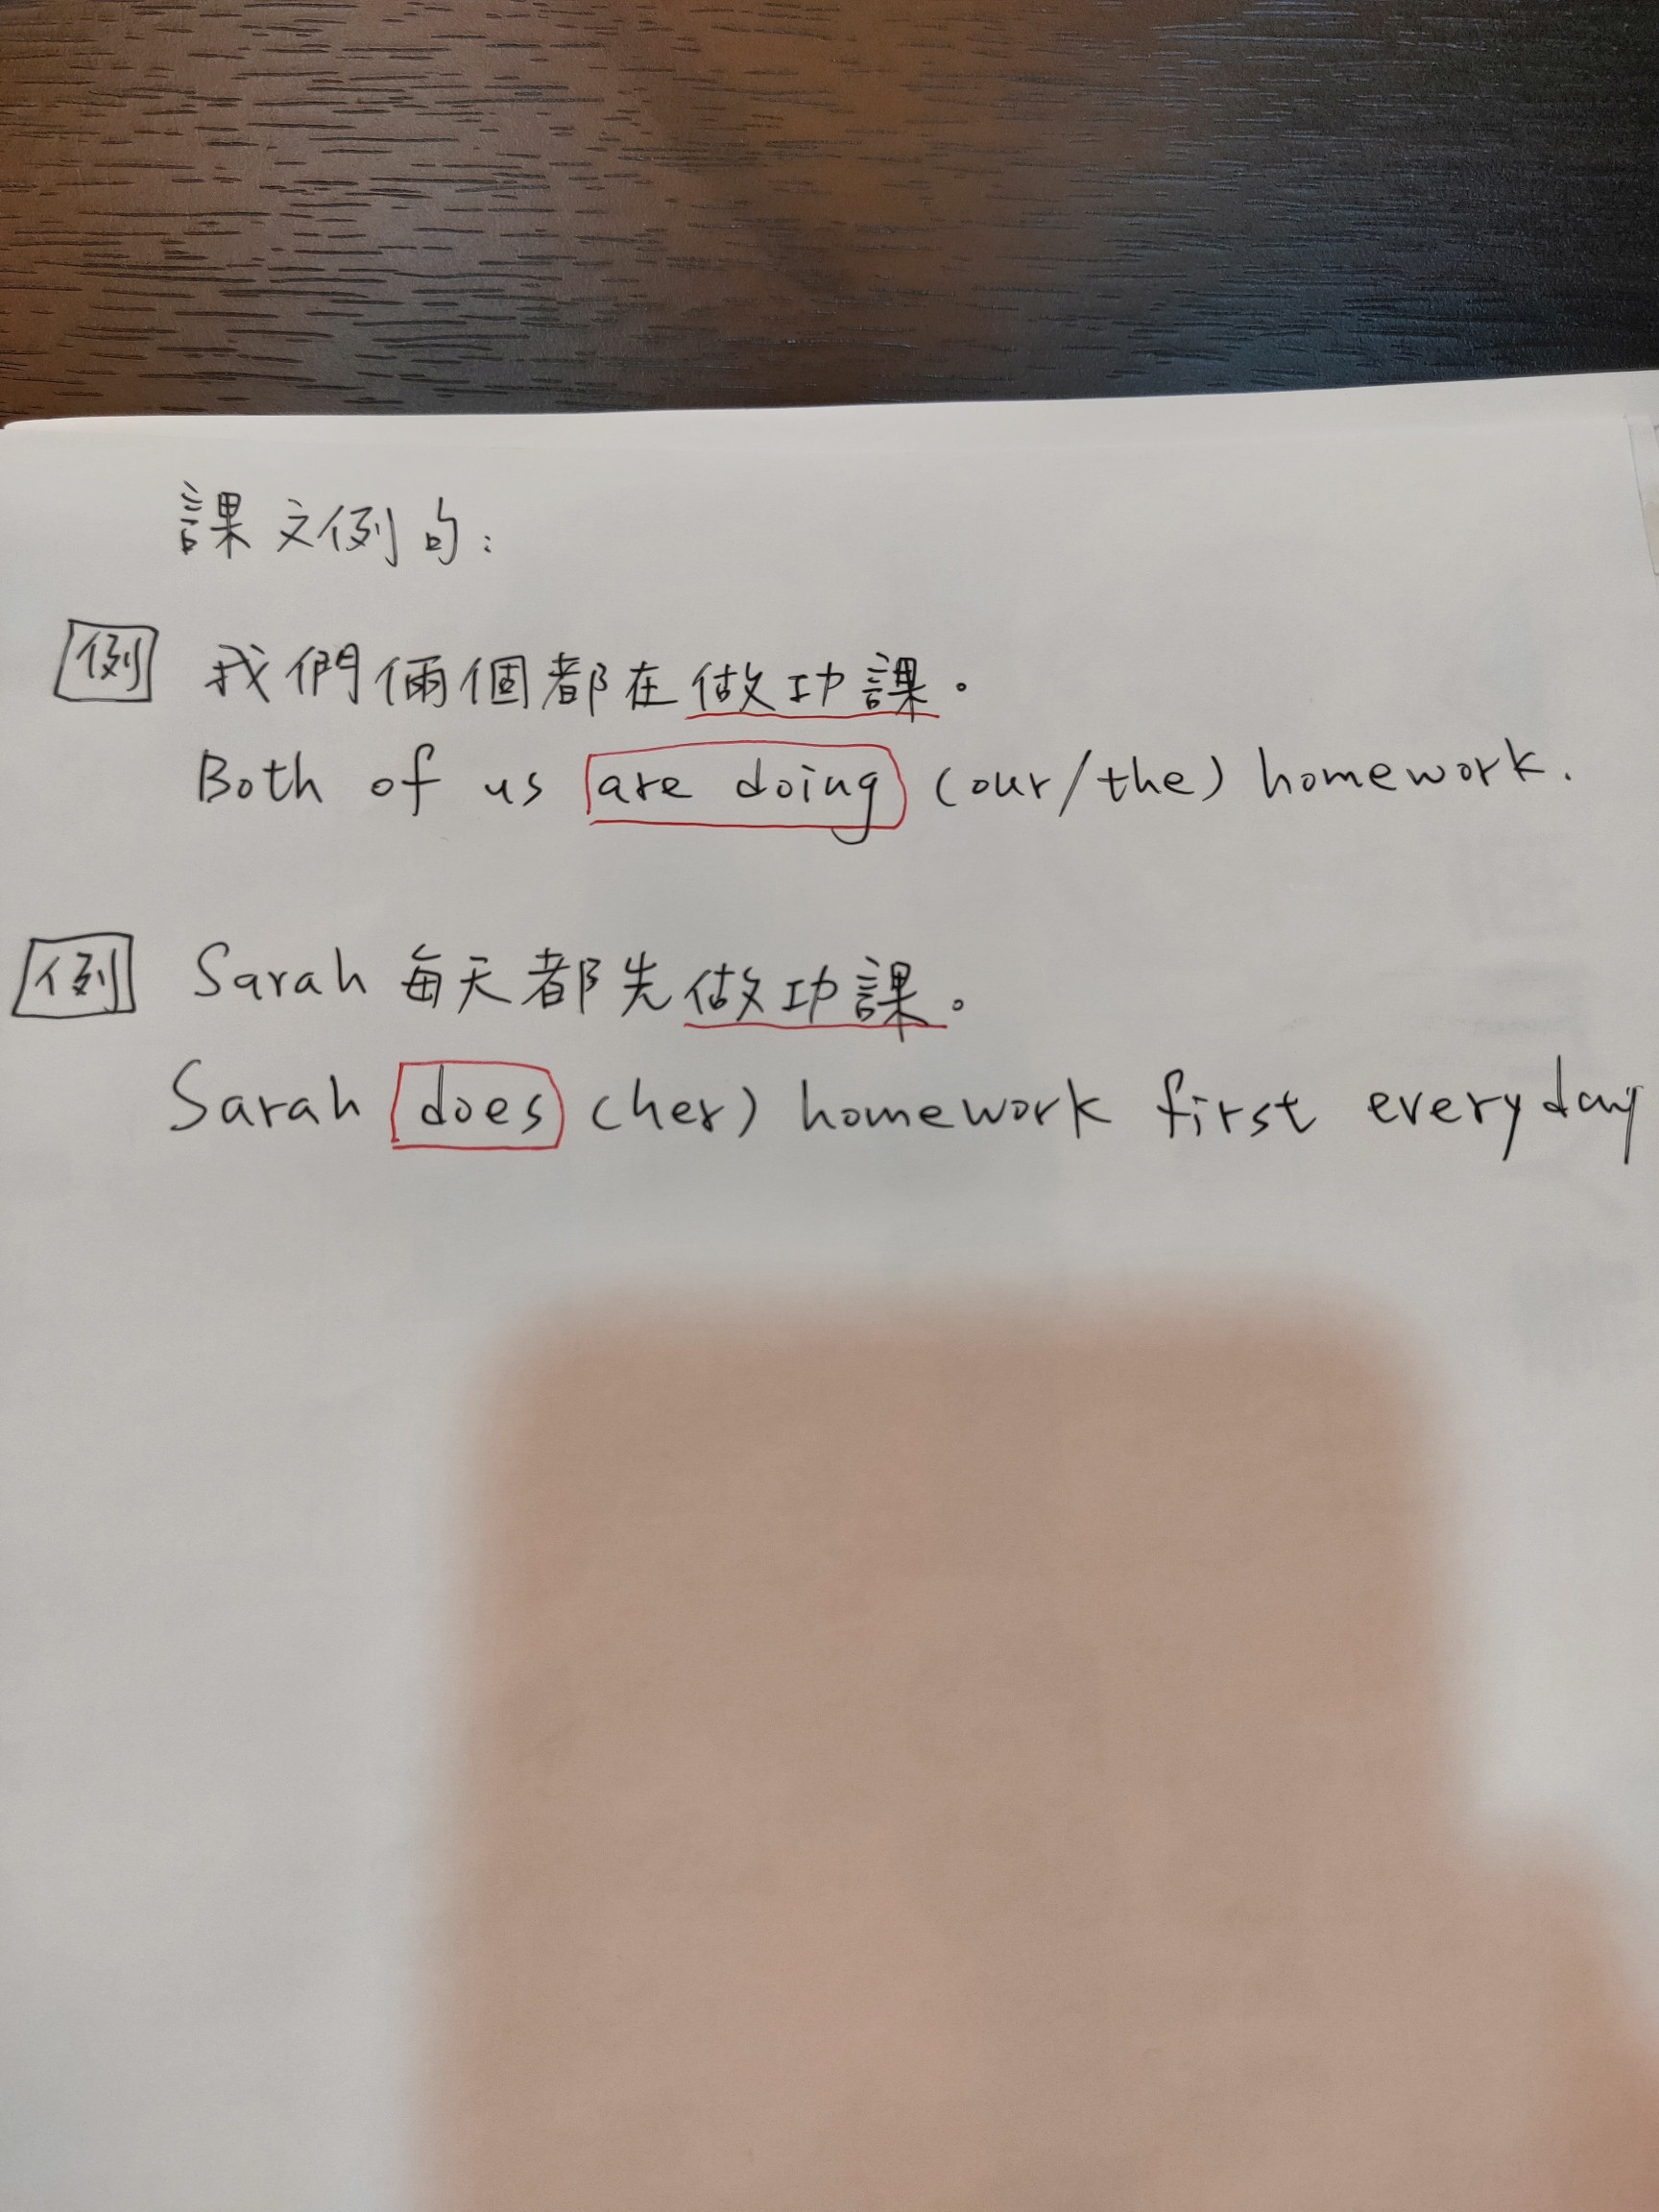 課文例句:
例 我們倆個都在做功課。
Both of us are doing (our/the) homework.
例 Sarah 每天都先做功課。
Sarah does (her) homework first everyday